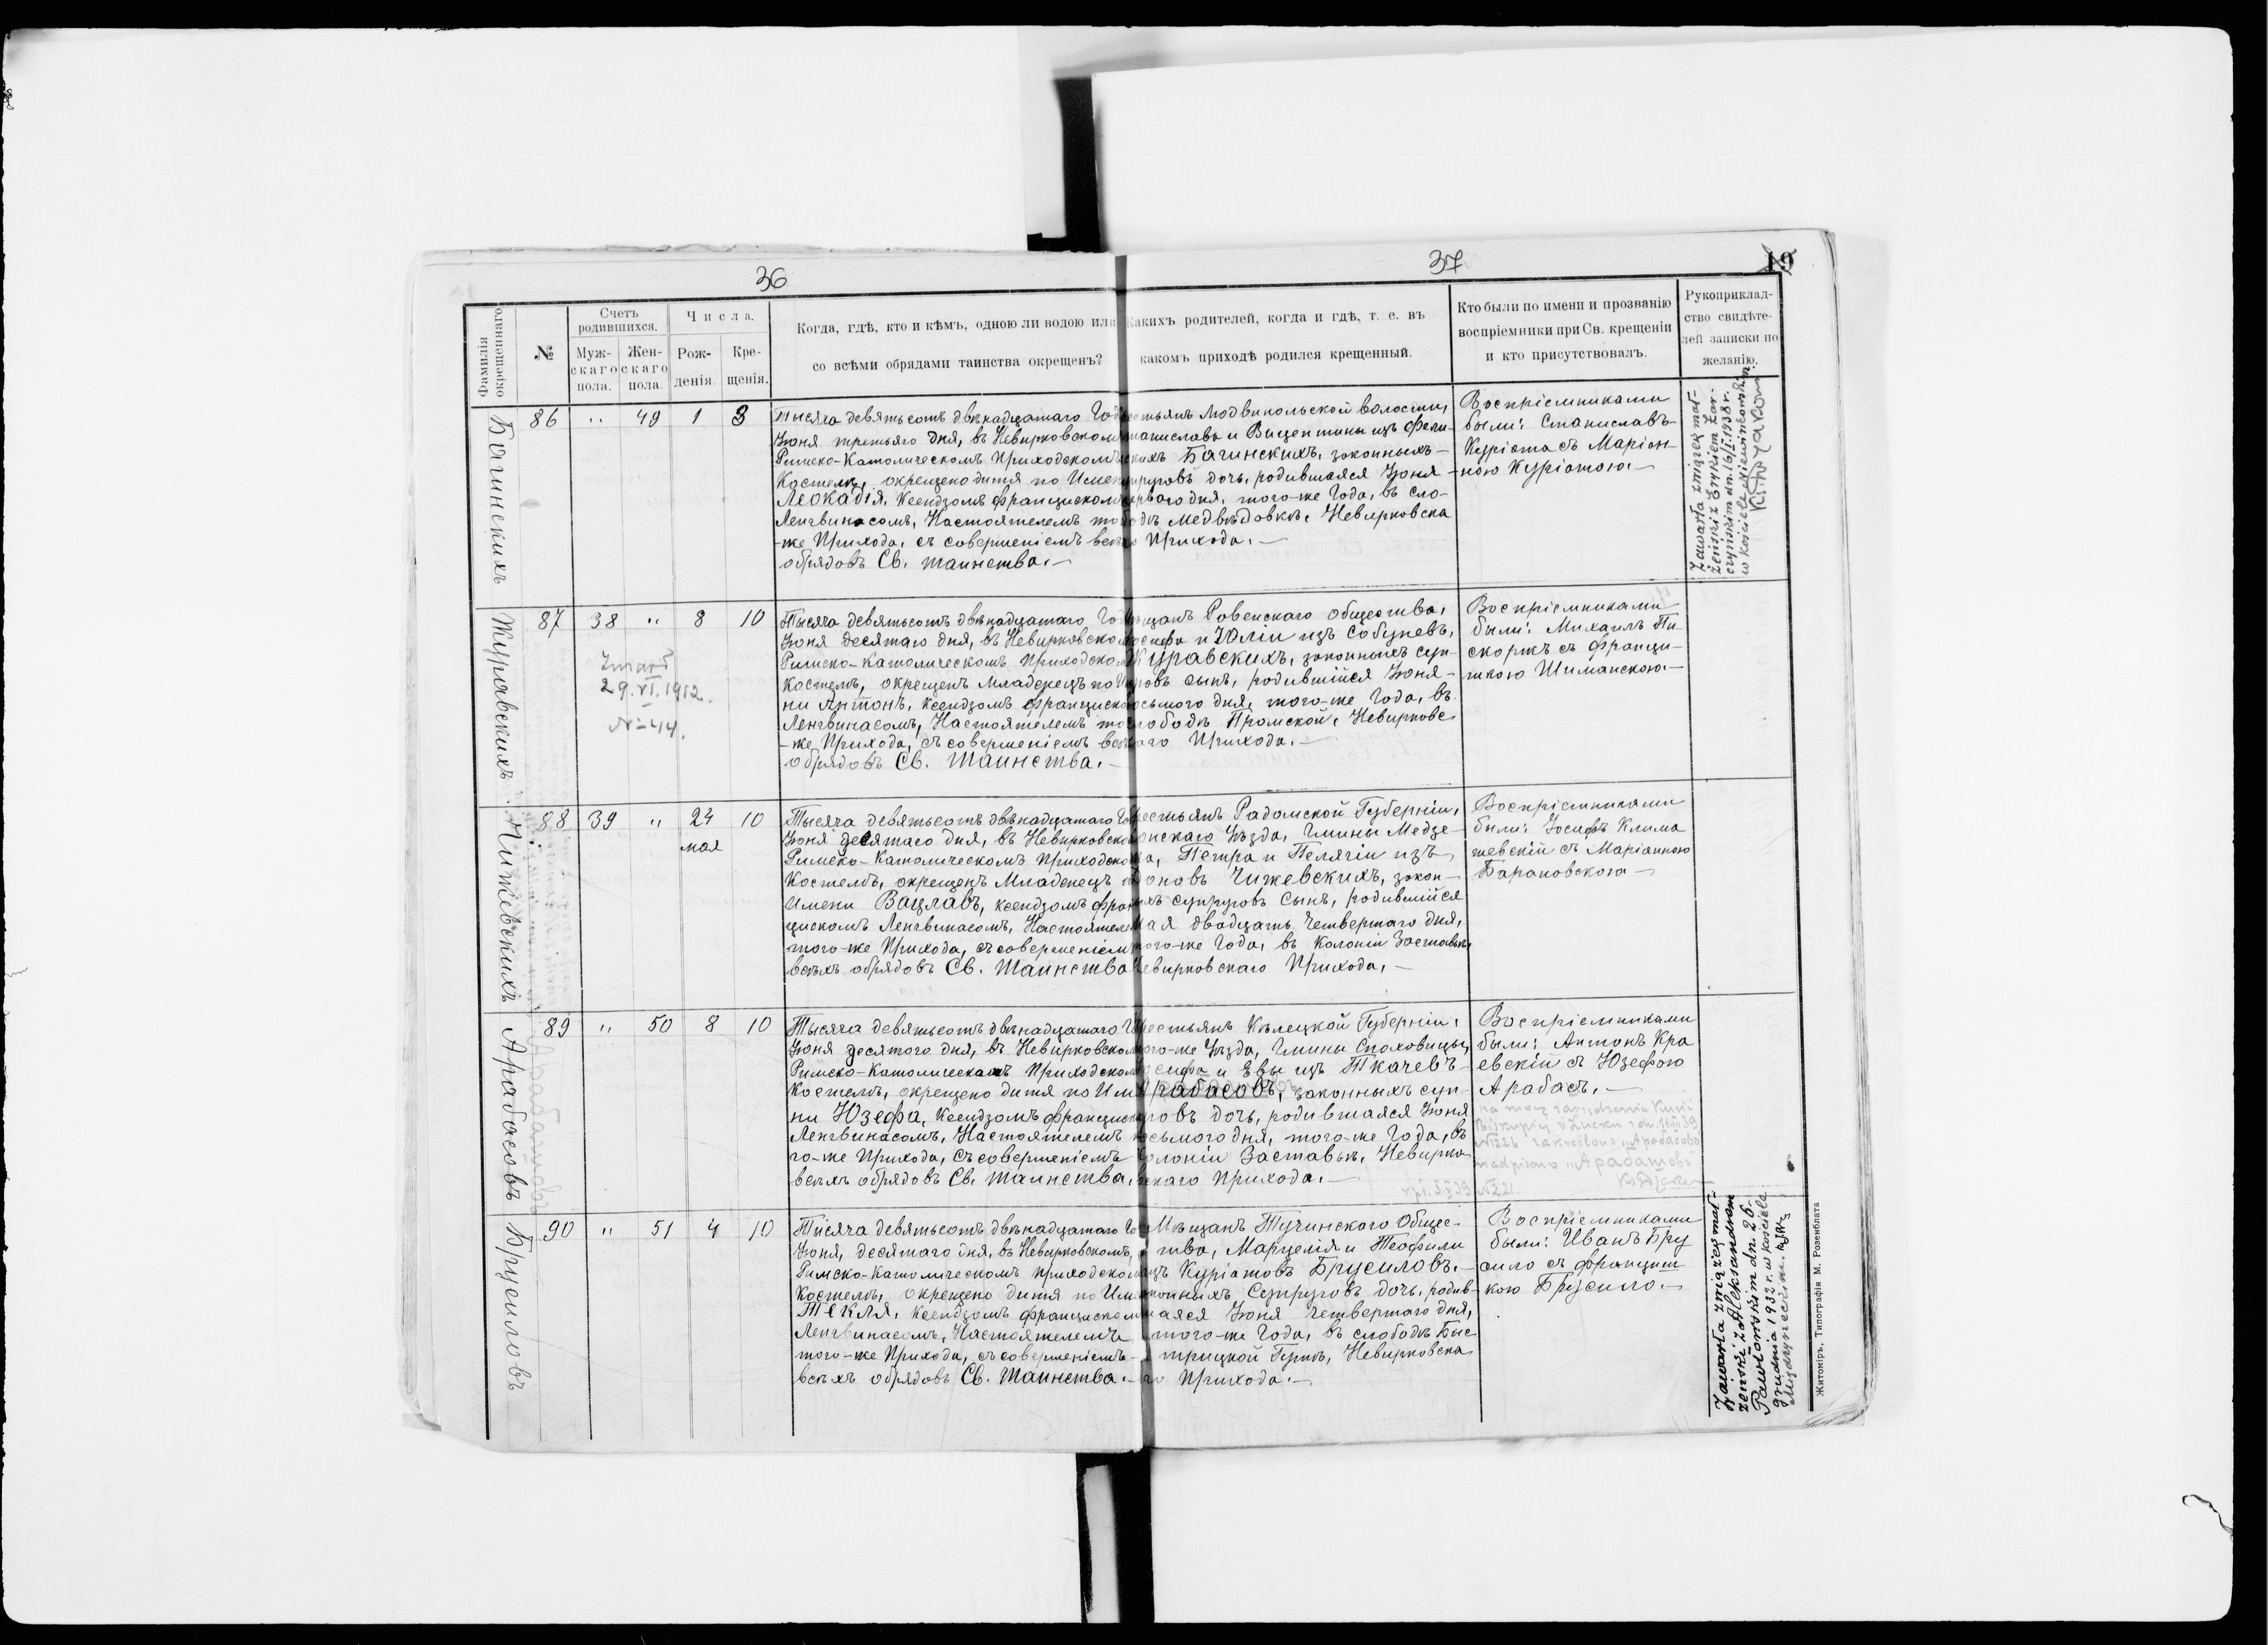 36
37
19
Фамилія окрещеннаго.
№
Счетъ родившихся.
Муж-скаго пола.
Жен-скаго пола.
Числа.
Рож-денія.
Кре-щенія.
Когда, гдѣ, кто и кѣмъ, одною ли водою или
со всѣми обрядами таинства окрещенъ?
какихъ родителей, когда и гдѣ, т. е. въ
какомъ приходѣ родился крещенный.
Кто были по имени и прозванію
воспріемники при Св. крещеніи
и кто присутствовалъ.
Рукоприклад-
ство свидѣте-
лей записки по
желанію.
Багинскихъ
86 " 49 1 3
Тысяча девятьсотъ двѣнадцатаго Год
Іюня третьяго дня, въ Невирковском
Римско-Католическомъ Приходскомъ
Костелѣ, окрещено дитя по Имен
Леокадія, Ксендзомъ Францискомъ
Ленгвинасомъ, Настоятелемъ то
-же Прихода, съ совершеніемъ всѣ
обрядовъ Св. Таинства.—
естьянъ Людвипольской волости,
танислава и Вицентины изъ Фели-
скихъ Багинскихъ, законныхъ-
пруговъ дочь, родившаяся Іюня
перваго дня, того-же Года, въ сло-
бодѣ Медвѣдовкѣ, Невирковска
Прихода.—
Воспріемниками
были: Станиславъ-
Куріата съ Маріан-
ною Куріатою.—
Zawarła związek mał-
żeński z Erykiem Zar-
czyńskim dn. 16/I.1938 r.
w kościele Niewirkowskim.
Журавскихъ
87 38 " 8 10
Zmarł
29.VI.1912.
N-44.
Тысяча девятьсотъ двѣнадцатаго Го
Іюня десятаго дня, въ Невирковско
Римско-Католическомъ Приходско
Костелѣ, окрещенъ Младенецъ по И
ни Антонъ, Ксендзомъ Францискo
Ленгвинасомъ, Настоятелемъ то
-же Прихода, съ совершеніемъ всѣ
обрядовъ Св. Таинства.—
ѣщанъ Ровенскаго Общества,
осифа и Юліи изъ Собуневъ,
Журавскихъ, законныхъ суп-
ровъ сынъ, родившійся Іюня-
осьмого дня, того-же Года, въ
слободѣ Промской, Невирковс
аго Прихода.—
Воспріемниками
были: Михаилъ Пи
скоржъ съ Франци-
шкою Шиманскою.—
Чижевскихъ
88 39 " 24 10
мая
Тысяча девятьсотъ двѣнадцатаго Го
Іюня десятаго дня, въ Невирковско
Римско-Католическомъ Приходско
Костелѣ, окрещенъ Младенецъ по
Имени Вацлавъ, Ксендзомъ Фран
цискомъ Ленгвинасомъ, Настоятеле
того-же Прихода, съ совершеніем
всѣхъ обрядовъ Св. Таинства
рестьянъ Радомской Губерніи,
онскаго Уѣзда, Гмины Медзе-
ка, Петра и Пелягіи изъ
оновъ Чижевскихъ, закон-
ныхъ Супруговъ Сынъ, родившійся
Мая двадцать Четвертаго дня,
того-же Года, въ Колоніи Заставье,
Невирковскаго Прихода.—
Воспріемниками
были: Іосифъ Клима
шевскій съ Маріанною
Барановскою—
Арабасовъ
89 " 50 8 10
Тысяча девятьсотъ двѣнадцатаго Го
Іюня десятого дня, въ Невирковском
Римско-Католическомъ Приходском
Костелѣ, окрещено дитя по Име
ни Юзефа, Ксендзомъ Франциск
Ленгвинасомъ, Настоятелемъ
го-же Прихода, съ совершеніемъ
всѣхъ обрядовъ Св. Таинства.
рестьянъ Кѣлецкой Губерніи,
того-же Уѣзда, Гмины
осифа и Эвы изъ Ткачевъ-
Арабасовъ, законныхъ суп-
ровъ дочь, родившаяся Іюня
осьмого дня, того-же Года, въ
олоніи Заставье, Невирко-
вскаго Прихода.—
Воспріемниками
были: Антонъ Кра
евскій съ Юзефою
Арабасъ.—
na mocy zarządzenia Kurii
Biskupiej w Łucku z dn.
zakreślono „Арабасовъ"
nadpisano „Арабашовъ"
Брусиловъ
90 " 51 4 10
Тысяча девятьсотъ двѣнадцатаго Го
Іюня, десятаго дня, въ Невирковскомъ,
Римско-Католическомъ Приходском
Костелѣ, окрещено дитя по Им
Текля, Ксендзомъ Францискom
Ленгвинасомъ, Настоятелемъ
того-же Прихода, съ совершеніемъ-
всѣхъ обрядовъ Св. Таинства.—
Мѣщанъ Тучинского Общес-
тва, Марцелія и Теофили
изъ Куріатовъ Брусиловъ.—
конныхъ Супруговъ дочь, родив-
шаяся Іюня Четвертаго дня,
того-же Года, въ слободѣ Быс
трицкой Гуткѣ, Невирковска
го Прихода.—
Воспріемниками
были: Иванъ Бру
сило съ Францит
кою Брусило.—
Zawarła związek mał-
żeński z Aleksandrem
Pawłowskim dn. 26.
grudnia 1932 r. w kościele
Житоміръ, Типографія М. Розенблата